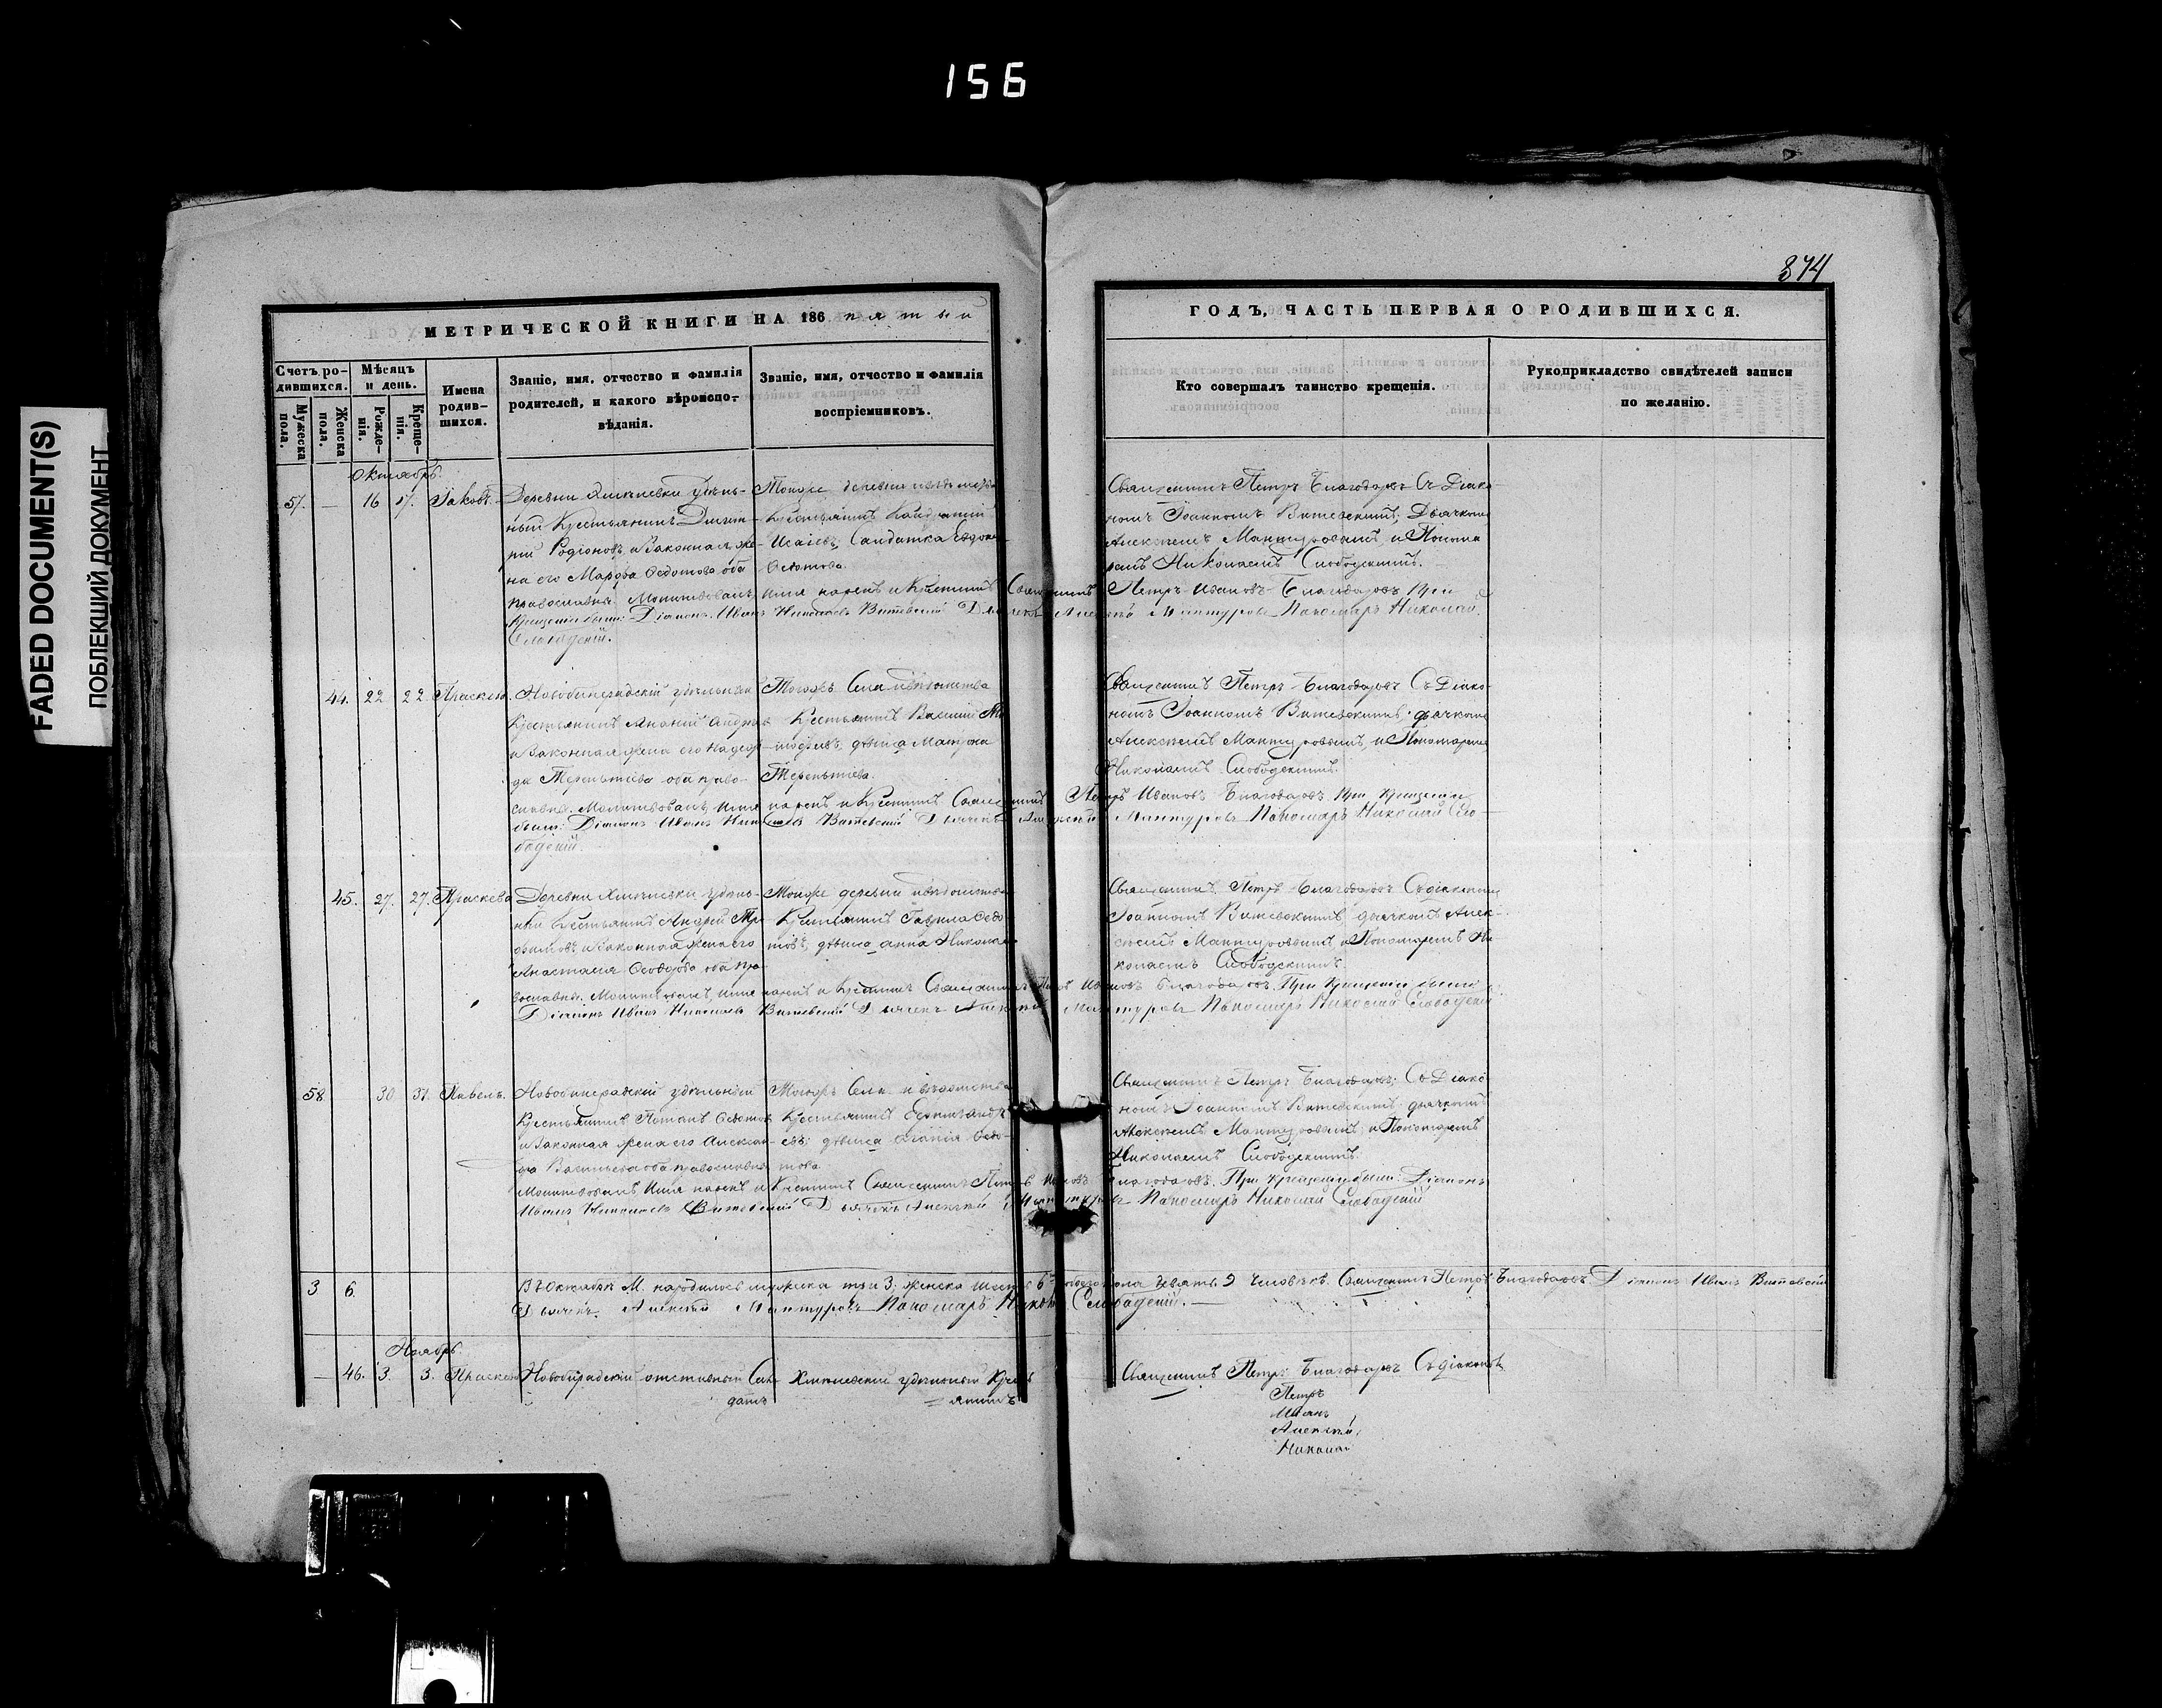 156
FADED DOCUMENT(S)
ПОБЛЕКШИЙ ДОКУМЕНТ
374
МЕТРИЧЕСКОЙ КНИГИ НА 186 пятый
ГОДЪ, ЧАСТЬ ПЕРВАЯ О РОДИВШИХСЯ.
Счетъ ро-
дившихся.
Мужеска
пола.
Женска
пола.
Мѣсяцъ
и день.
Рожде-
нія.
Креще-
нія.
Имена
родив-
шихся.
Званіе, имя, отчество и фамилія
родителей, и какого вѣроиспо-
вѣданія.
Званіе, имя, отчество и фамилія
воспріемниковъ.
Кто совершалъ таинство крещенія.
Рукоприкладство свидѣтелей записи
по желанію.
Октябрь.
57. — 16 17. Іаковъ.
Деревни удѣль-
ный Крестьянинъ
Родіоновъ, и Законная же-
на его Марѳа Ѳедотова оба
православные. Молитвовалъ, имя нарекъ и Крестилъ Священникъ Петръ Ивановъ Благодаровъ При
Крещеніи были: Діаконъ Иванъ Николаевъ Витевскій Дьячекъ Алексѣй Мантуровъ Пономарь Николай
Слободскій.
Тойже деревни и вѣдомства
Крестьянинъ
Исаіевъ; Салдатка
Ѳедотова.
Священникъ Петръ Благодаровъ Съ Діако-
номъ Іоанномъ Витевскимъ, Дьячкомъ
Алексѣемъ Мантуровымъ и Понома-
ремъ Николаемъ Слободскимъ.
44. 22 22. Праскев.
удѣльный
Крестьянинъ Ананій Андреевъ
и Законная жена его Надеж-
да Терентьева оба право-
славные. Молитвовалъ, имя нарекъ и Крестилъ Священникъ Петръ Ивановъ Благодаровъ. При Крещеніи
были: Діаконъ Иванъ Николаевъ Витевскій Дьячекъ Алексѣй Мантуровъ Пономарь Николай Сло-
бодскій.
Тогожъ Села и вѣдомства
Крестьянинъ Василій
дѣвица Матрона
Терентьева.
Священникъ Петръ Благодаровъ Съ Діако-
номъ Іоанномъ Витевскимъ; дьячкомъ
Алексѣемъ Мантуровымъ, и Пономаремъ
Николаемъ Слободскимъ.
45. 27. 27. Праскева
Деревни удѣль-
ный Крестьянинъ Андрей Тро-
фимовъ и Законная жена его
Анастасія Ѳеодорова оба пра-
вославные. Молитвовалъ, имя нарекъ и Крестилъ Священникъ Петръ Ивановъ Благодаровъ. При Крещеніи были:
Діаконъ Иванъ Николаевъ Витевскій Дьячекъ Алексѣй Мантуровъ Пономарь Николай Слободскій
Тойже деревни и вѣдомства
Крестьянинъ Гаврила Ѳедо-
товъ; дѣвица Анна
Священникъ Петръ Благодаровъ Съ діакономъ
Іоанномъ Витевскимъ дьячкомъ Алек-
сѣемъ Мантуровымъ, и Пономаремъ Ни-
колаемъ Слободскимъ.
58 30 31. Павелъ.
удѣльный
Крестьянинъ Потапъ Ѳедотовъ
и Законная жена его Алексан-
дра Васильева оба православные
Молитвовалъ Имя нарекъ и Крестилъ Священникъ Петръ Ивановъ Благодаровъ. При Крещеніи были: Діаконъ
Иванъ Николаевъ Витевскій Дьячекъ Алексѣй Мантуровъ Пономарь Николай Слободскій
Тогожъ Села и вѣдомства
Крестьянинъ
дѣвица Ѳедо-
това.
Священникъ Петръ Благодаровъ; Съ Діако-
номъ Іоанномъ Витевскимъ дьячкомъ
Алексѣемъ Мантуровымъ, и Пономаремъ
Николаемъ Слободскимъ.
3 6
Въ Октябрѣ М. народилось мужеска три 3; женска шесть 6 обоего пола девять 9 человѣкъ. Священникъ Петръ Благодаровъ Діаконъ Иванъ Витевскій
Дьячекъ Алексѣй Мантуровъ Пономарь Николай Слободскій.
Ноябрь.
— 46. 3. 3. Праскев
отставный Сал-
датъ
удѣльный Кресть-
янинъ
Священникъ Петръ Благодаровъ Съ діакономъ
Петръ
Иванъ
Алексѣй
Николай